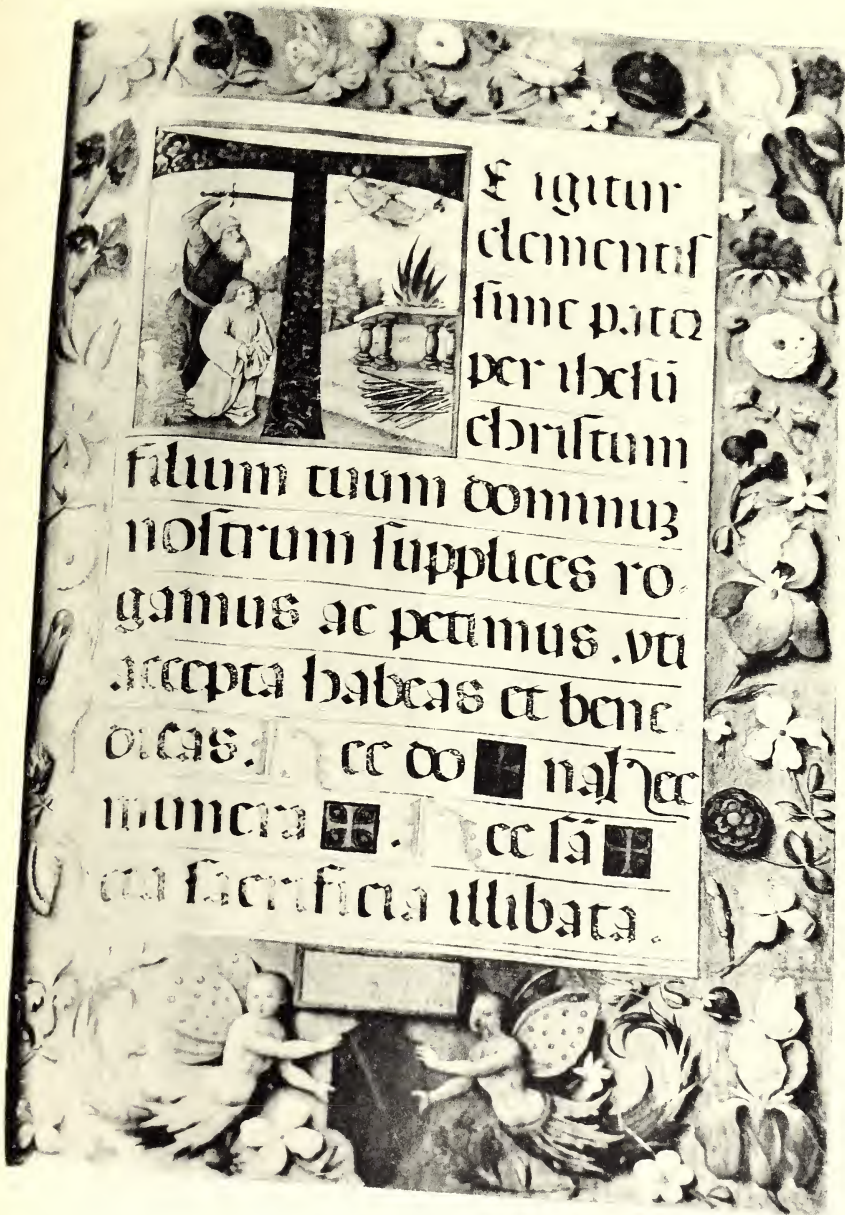 TE igitur
clementiſ
ſime pater
per iheſū
chriſtum
filium tuum dominuꝫ
noſtrum ſupplices ro
gamus ac petimus .vti
accepta habeas et bene
dicas. Hec do ✠ na hec
munera ✠. Hec ſā ✠
cta ſacrificia illibata.